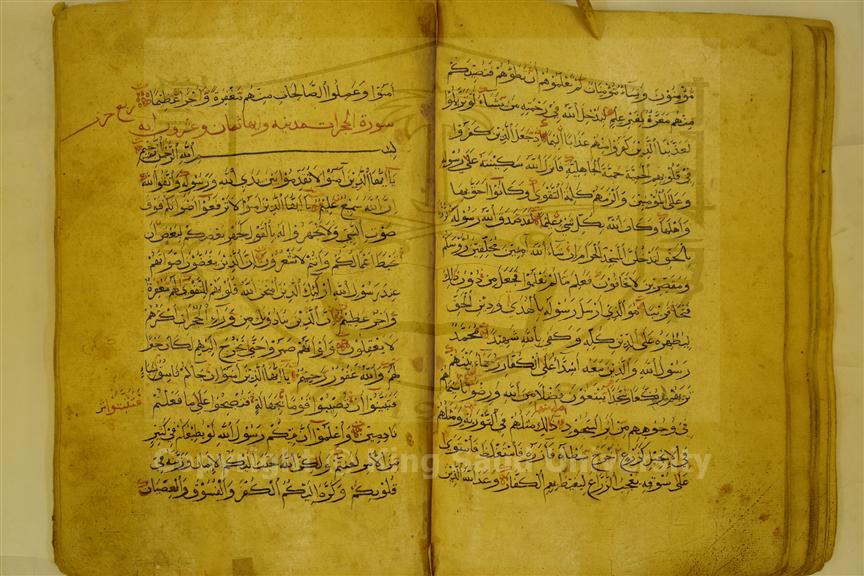 مؤمنون ونساء مؤمنات لم تعلموهم ان تطؤهم فتصيبكم
منهم معرة بغير علم ليدخل الله في رحمته من يشاء لو تزيلوا
لعذبنا الذين كفروا منهم عذابا اليما اذ جعل الذين كفروا
في قلوبهم الحمية حمية الجاهلية فانزل الله سكينته على رسوله
وعلى المؤمنين والزمهم كلمة التقوى وكانوا احق بها
واهلها وكان الله بكل شئ عليما لقد صدق الله رسوله
بالحق لتدخلن المسجد الحرام ان شاء الله امنين محلقين رؤسكم
ومقصرين لا تخافون فعلم ما لم تعلموا فجعل من دون ذلك
فتحا قريبا هو الذي ارسل رسوله بالهدى ودين الحق
ليظهره على الدين كله وكفى بالله شهيدا محمد
رسول الله والذين معه اشداء على الكفار رحماء بينهم
تريهم ركعا سجدا يبتغون فضلا من الله ورضوانا سيماهم
في وجوههم من اثر السجود ذلك مثلهم في التورية ومثلهم
في الانجيل كزرع اخرج شطاه فازره فاستغلظ فاستوى
على سوقه يعجب الزراع ليغيظ بهم الكفار وعد الله الذين
امنوا وعملوا الصالحات منهم مغفرة واجرا عظيما
ربع حزب
سورة الحجرات مدنية وهي ثمان وعشرون اية
بسم الله الرحمن الرحيم
يا ايها الذين آمنوا لا تقدموا بين يدي الله ورسوله واتقوا الله
ان الله سميع عليم يا ايها الذين آمنوا لا ترفعوا اصواتكم فوق
صوت النبي ولا تجهروا له بالقول كجهر بعضكم لبعض ان
تحبط اعمالكم وانتم لا تشعرون ان الذين يغضون اصواتهم
عند رسول الله اولئك الذين امتحن الله قلوبهم للتقوى لهم مغفرة
واجر عظيم ان الذين ينادونك من وراء الحجرات اكثرهم
لا يعقلون ولو انهم صبروا حتى تخرج اليهم لكان خيرا
لهم والله غفور رحيم يا ايها الذين آمنوا ان جاءكم فاسق بنباء
فتبينوا ان تصيبوا قوما بجهالة فتصبحوا على ما فعلتم
فتثبتوا
نادمين واعلموا ان فيكم رسول الله لو يطيعكم في كثير
من الامر لعنتم ولكن الله حبب اليكم الايمان وزينه في
قلوبكم وكره اليكم الكفر والفسوق والعصيان
Copyright © King Saud University